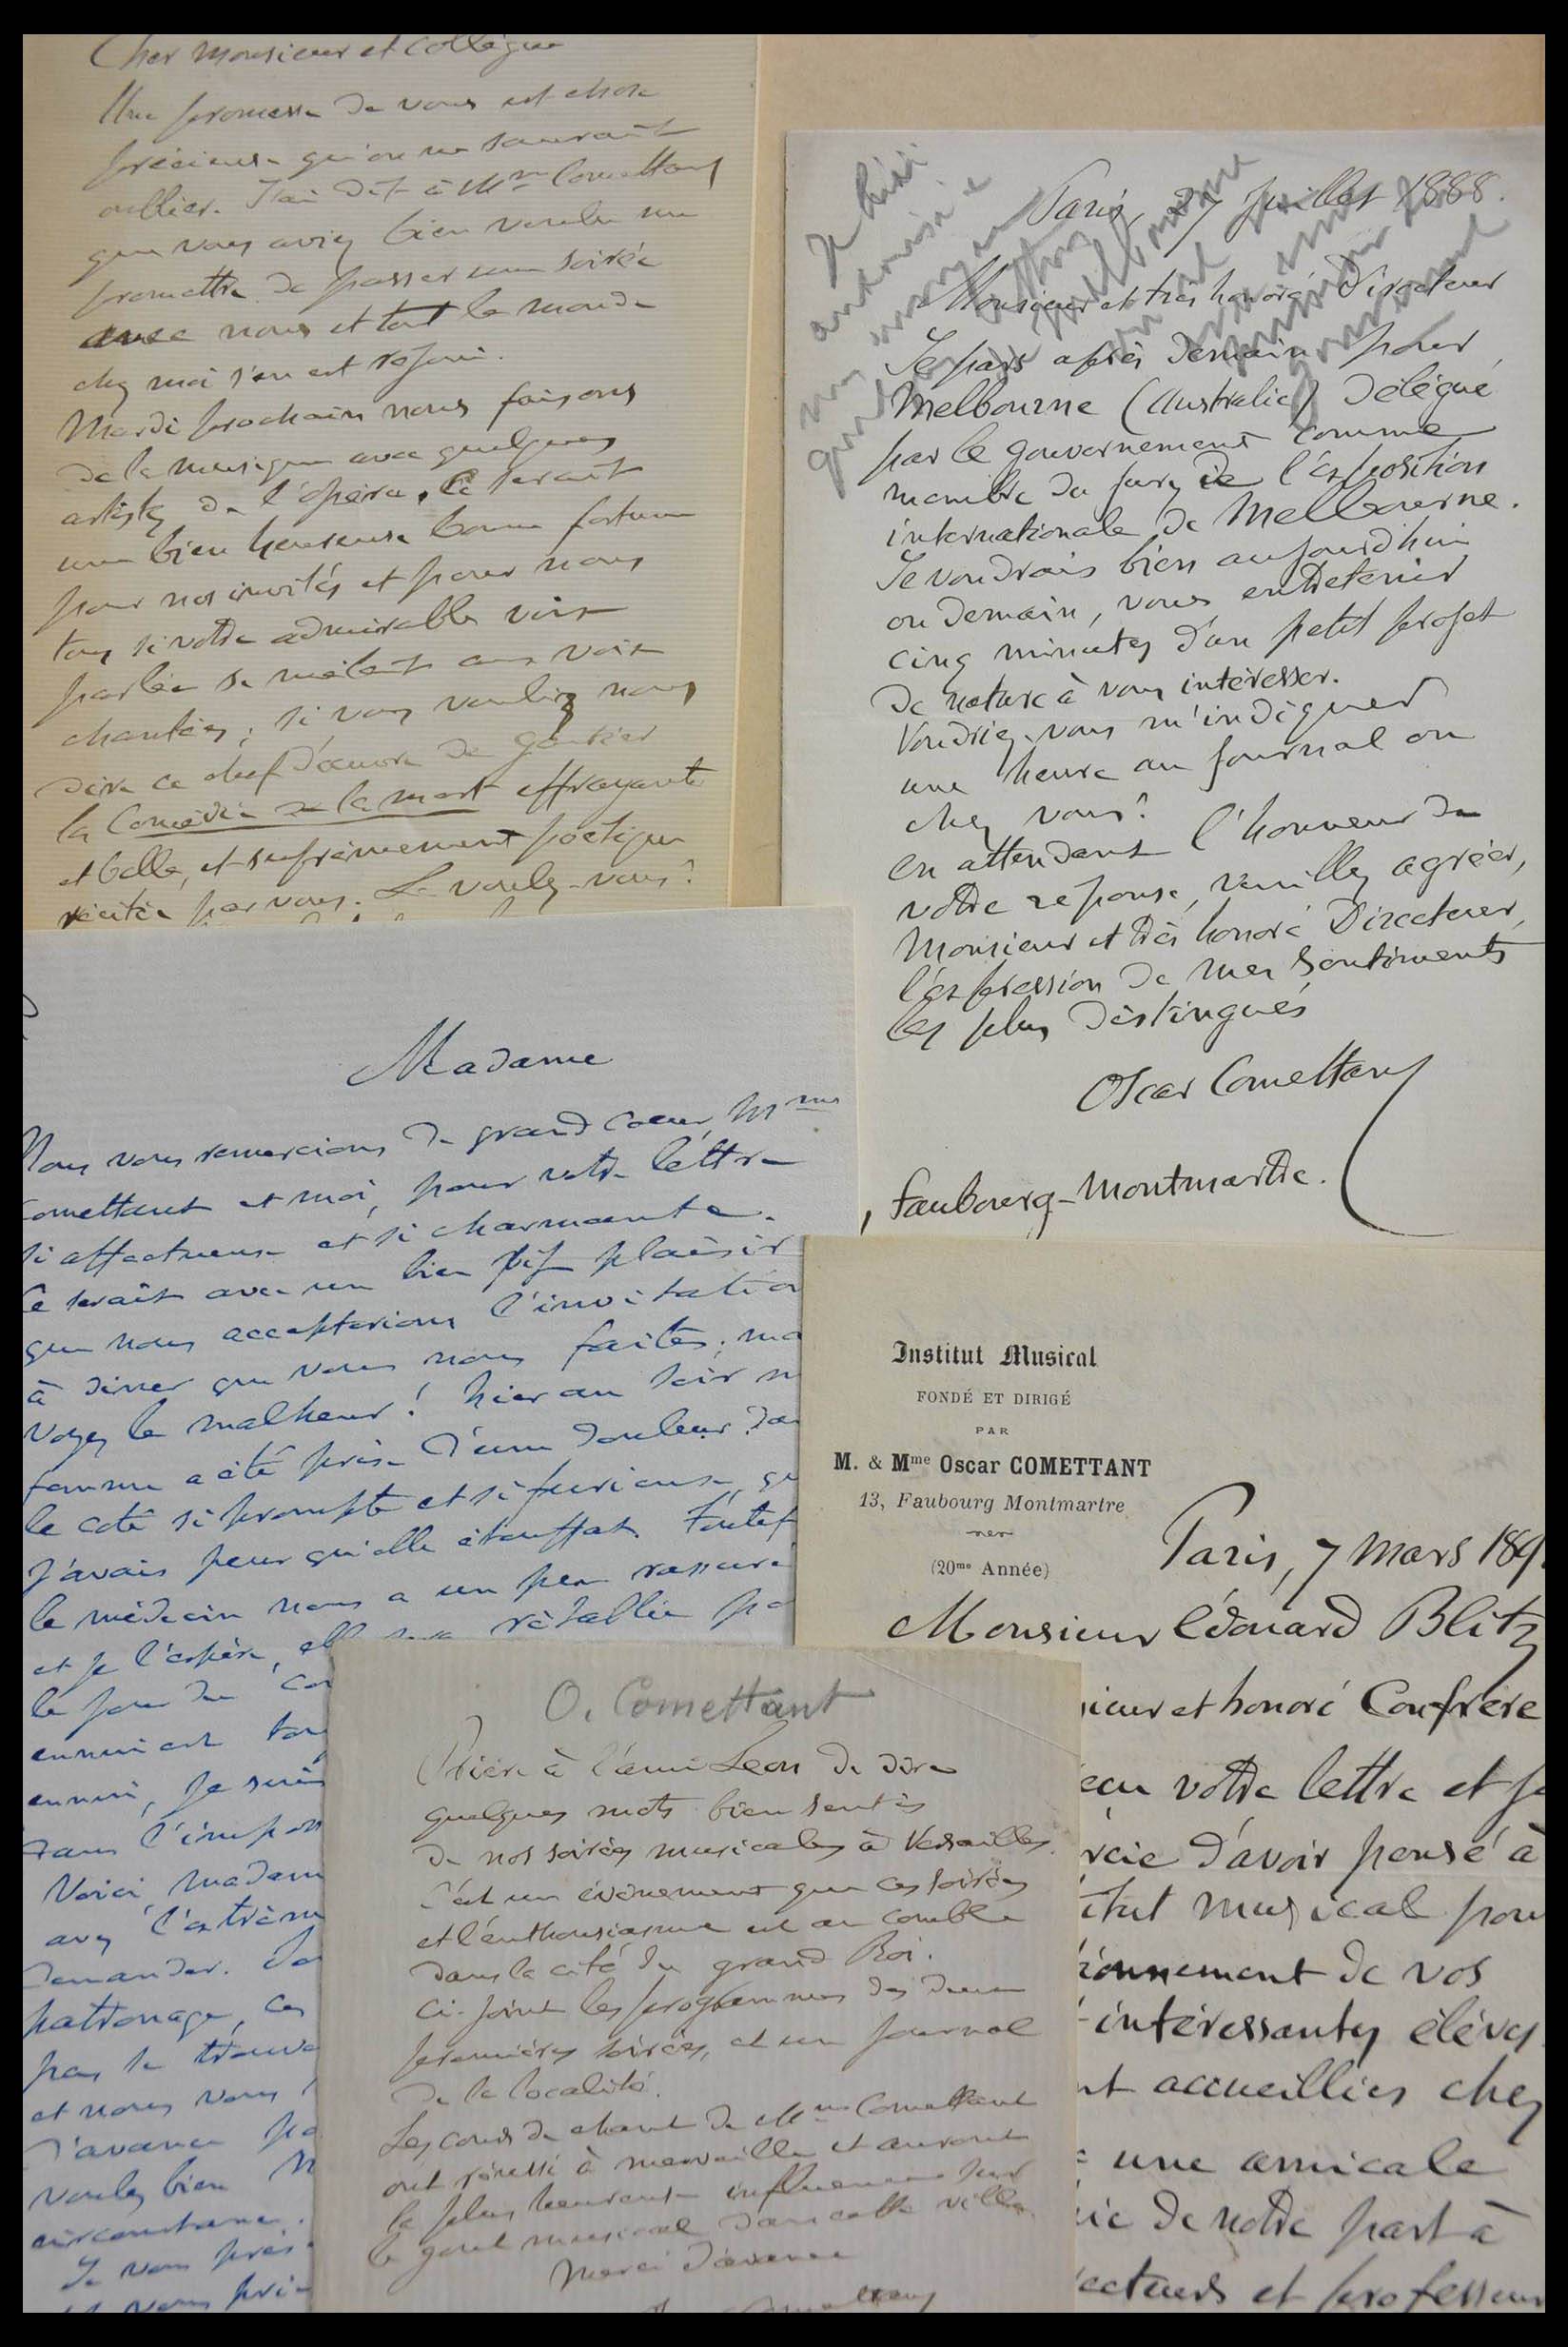 Cher Monsieur et Collègue
Une promesse de vous est chose
précieuse qu'on ne saurait
oublier. J'ai dit à Mme Comettant
que vous aviez bien voulu me
promettre de passer une soirée
avec nous et tout le monde
chez moi s'en est réjoui.
Mardi prochain nous faisons
de la musique avec quelques
artistes de l'opéra. Ce serait
une bien heureuse bonne fortune
pour nos invités et pour nous
tous si votre admirable voix
parlée se mêlait aux voix
chantées; si vous vouliez nous
dire ce chef d'œuvre de Gautier
la Comédie de la mort effrayante
et belle, et suprèmement poétique
récitée par vous. Le voulez-vous?
Paris, 27 Juillet 1888.
Monsieur et très honoré Directeur
Je pars après demain pour
Melbourne (Australie) Délégué
par le gouvernement comme
membre du Jury de l'exposition
internationale de Melbourne.
Je voudrais bien aujourd'hui
ou demain, vous entretenir
cinq minutes d'un petit projet
de nature à vous intéresser.
Voudriez-vous m'indiquer
une heure au journal ou
chez vous?
En attendant l'honneur de
votre réponse, veuillez agréer,
Monsieur et très honoré Directeur,
l'expression de mes sentiments
les plus distingués
Oscar Comettant
, faubourg-Montmartre.
Madame
Nous vous remercions de grand cœur, Mme
Comettant et moi, pour votre lettre
si affectueuse et si charmante.
Ce serait avec un bien vif plaisir
que nous accepterions l'invitation
à diner que vous nous faites; ma
voyez le malheur! hier au soir m
femme a été prise d'une douleur da
le coté si prompte et si furieuse, qu
j'avais peur qu'elle étouffat. Toutef
le médecin nous a un peu rassuré
et je l'espère, ell sera rétablie po
le jour du con
ennui est tou
ennui, je suis
dans l'impos
Voici, madam
avez l'extrème
demander.
patronage, ces
pas se trouve
et nous vous
d'avance
voulez bien
circonstance.
Je vous prie
Institut Musical
FONDÉ ET DIRIGÉ
PAR
M. & Mme Oscar COMETTANT
13, Faubourg Montmartre
(20me Année)
Paris, 7 mars 189
Monsieur Édouard Blitz
sieur et honoré Confrère
eçu votre lettre et je
rcie d'avoir pensé à
titut musical pour
ionnement de vos
intéressantes élèves
nt accueillies chez
une amicale
ie de notre part à
ecteurs et professeurs
O. Comettant
Prière à l'ami Léon de dire
quelques mots bien sentis
de nos soirées musicales à Versailles.
C'est un évènement que ces soirées
et l'enthousiasme est au comble
dans la cité du grand Roi.
Ci-joint les programmes des deux
premières soirées, et un journal
de la localité.
Les cours de chant de Mme Comettant
ont réussi à merveille et auront
la plus heureuse influence sur
le gout musical dans cette ville.
Merci d'avance